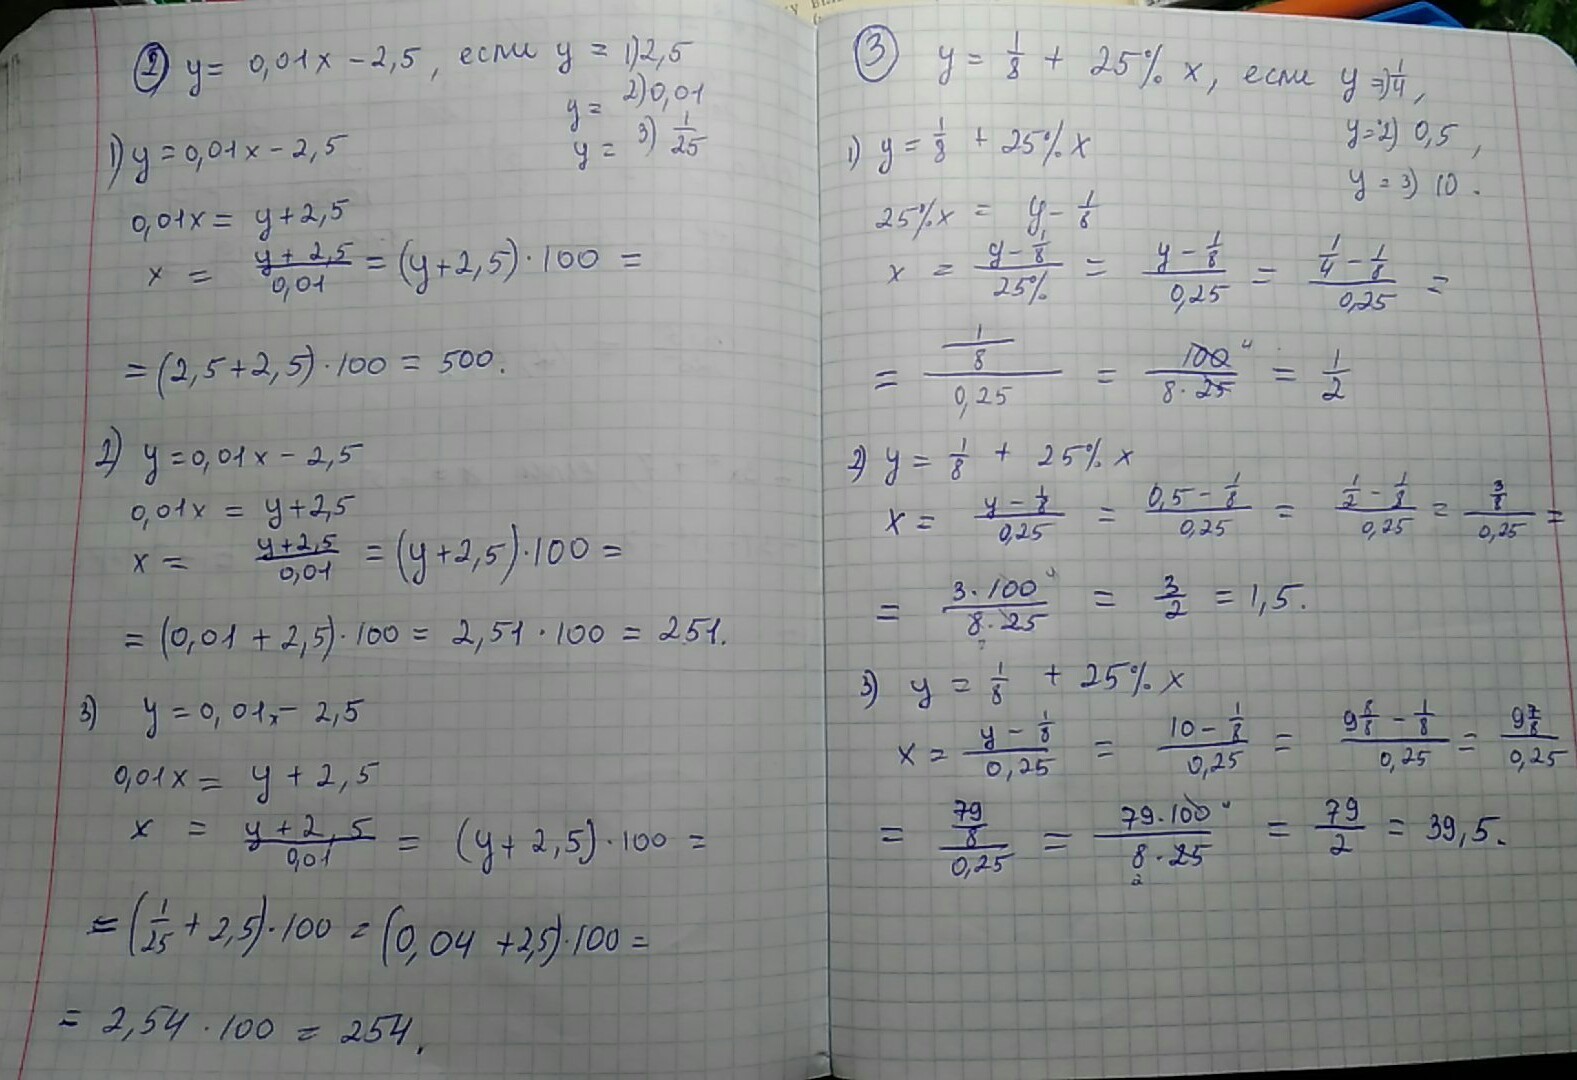 ② y = 0,01x - 2,5, если y = 1) 2,5
y = 2) 0,01
y = 3) 1/25
1) y = 0,01x - 2,5
0,01x = y + 2,5
x = (y + 2,5)/0,01 = (y + 2,5) · 100 =
= (2,5 + 2,5) · 100 = 500.
2) y = 0,01x - 2,5
0,01x = y + 2,5
x = (y + 2,5)/0,01 = (y + 2,5) · 100 =
= (0,01 + 2,5) · 100 = 2,51 · 100 = 251.
3) y = 0,01x - 2,5
0,01x = y + 2,5
x = (y + 2,5)/0,01 = (y + 2,5) · 100 =
= (1/25 + 2,5) · 100 = (0,04 + 2,5) · 100 =
= 2,54 · 100 = 254.
③ y = 1/8 + 25% x, если y = 1) 1/4,
y = 2) 0,5,
y = 3) 10.
1) y = 1/8 + 25% x
25% x = y - 1/8
x = (y - 1/8)/25% = (y - 1/8)/0,25 = (1/4 - 1/8)/0,25 =
= (1/8)/0,25 = 100 4/(8 · 25) = 1/2
2) y = 1/8 + 25% x
x = (y - 1/8)/0,25 = (0,5 - 1/8)/0,25 = (1/2 - 1/8)/0,25 = (3/8)/0,25 =
= (3 · 100 4)/(8 · 25) = 3/2 = 1,5.
3) y = 1/8 + 25% x
x = (y - 1/8)/0,25 = (10 - 1/8)/0,25 = (9 8/8 - 1/8)/0,25 = (9 7/8)/0,25
= (79/8)/0,25 = (79 · 100 4)/(8 2 · 25) = 79/2 = 39,5.